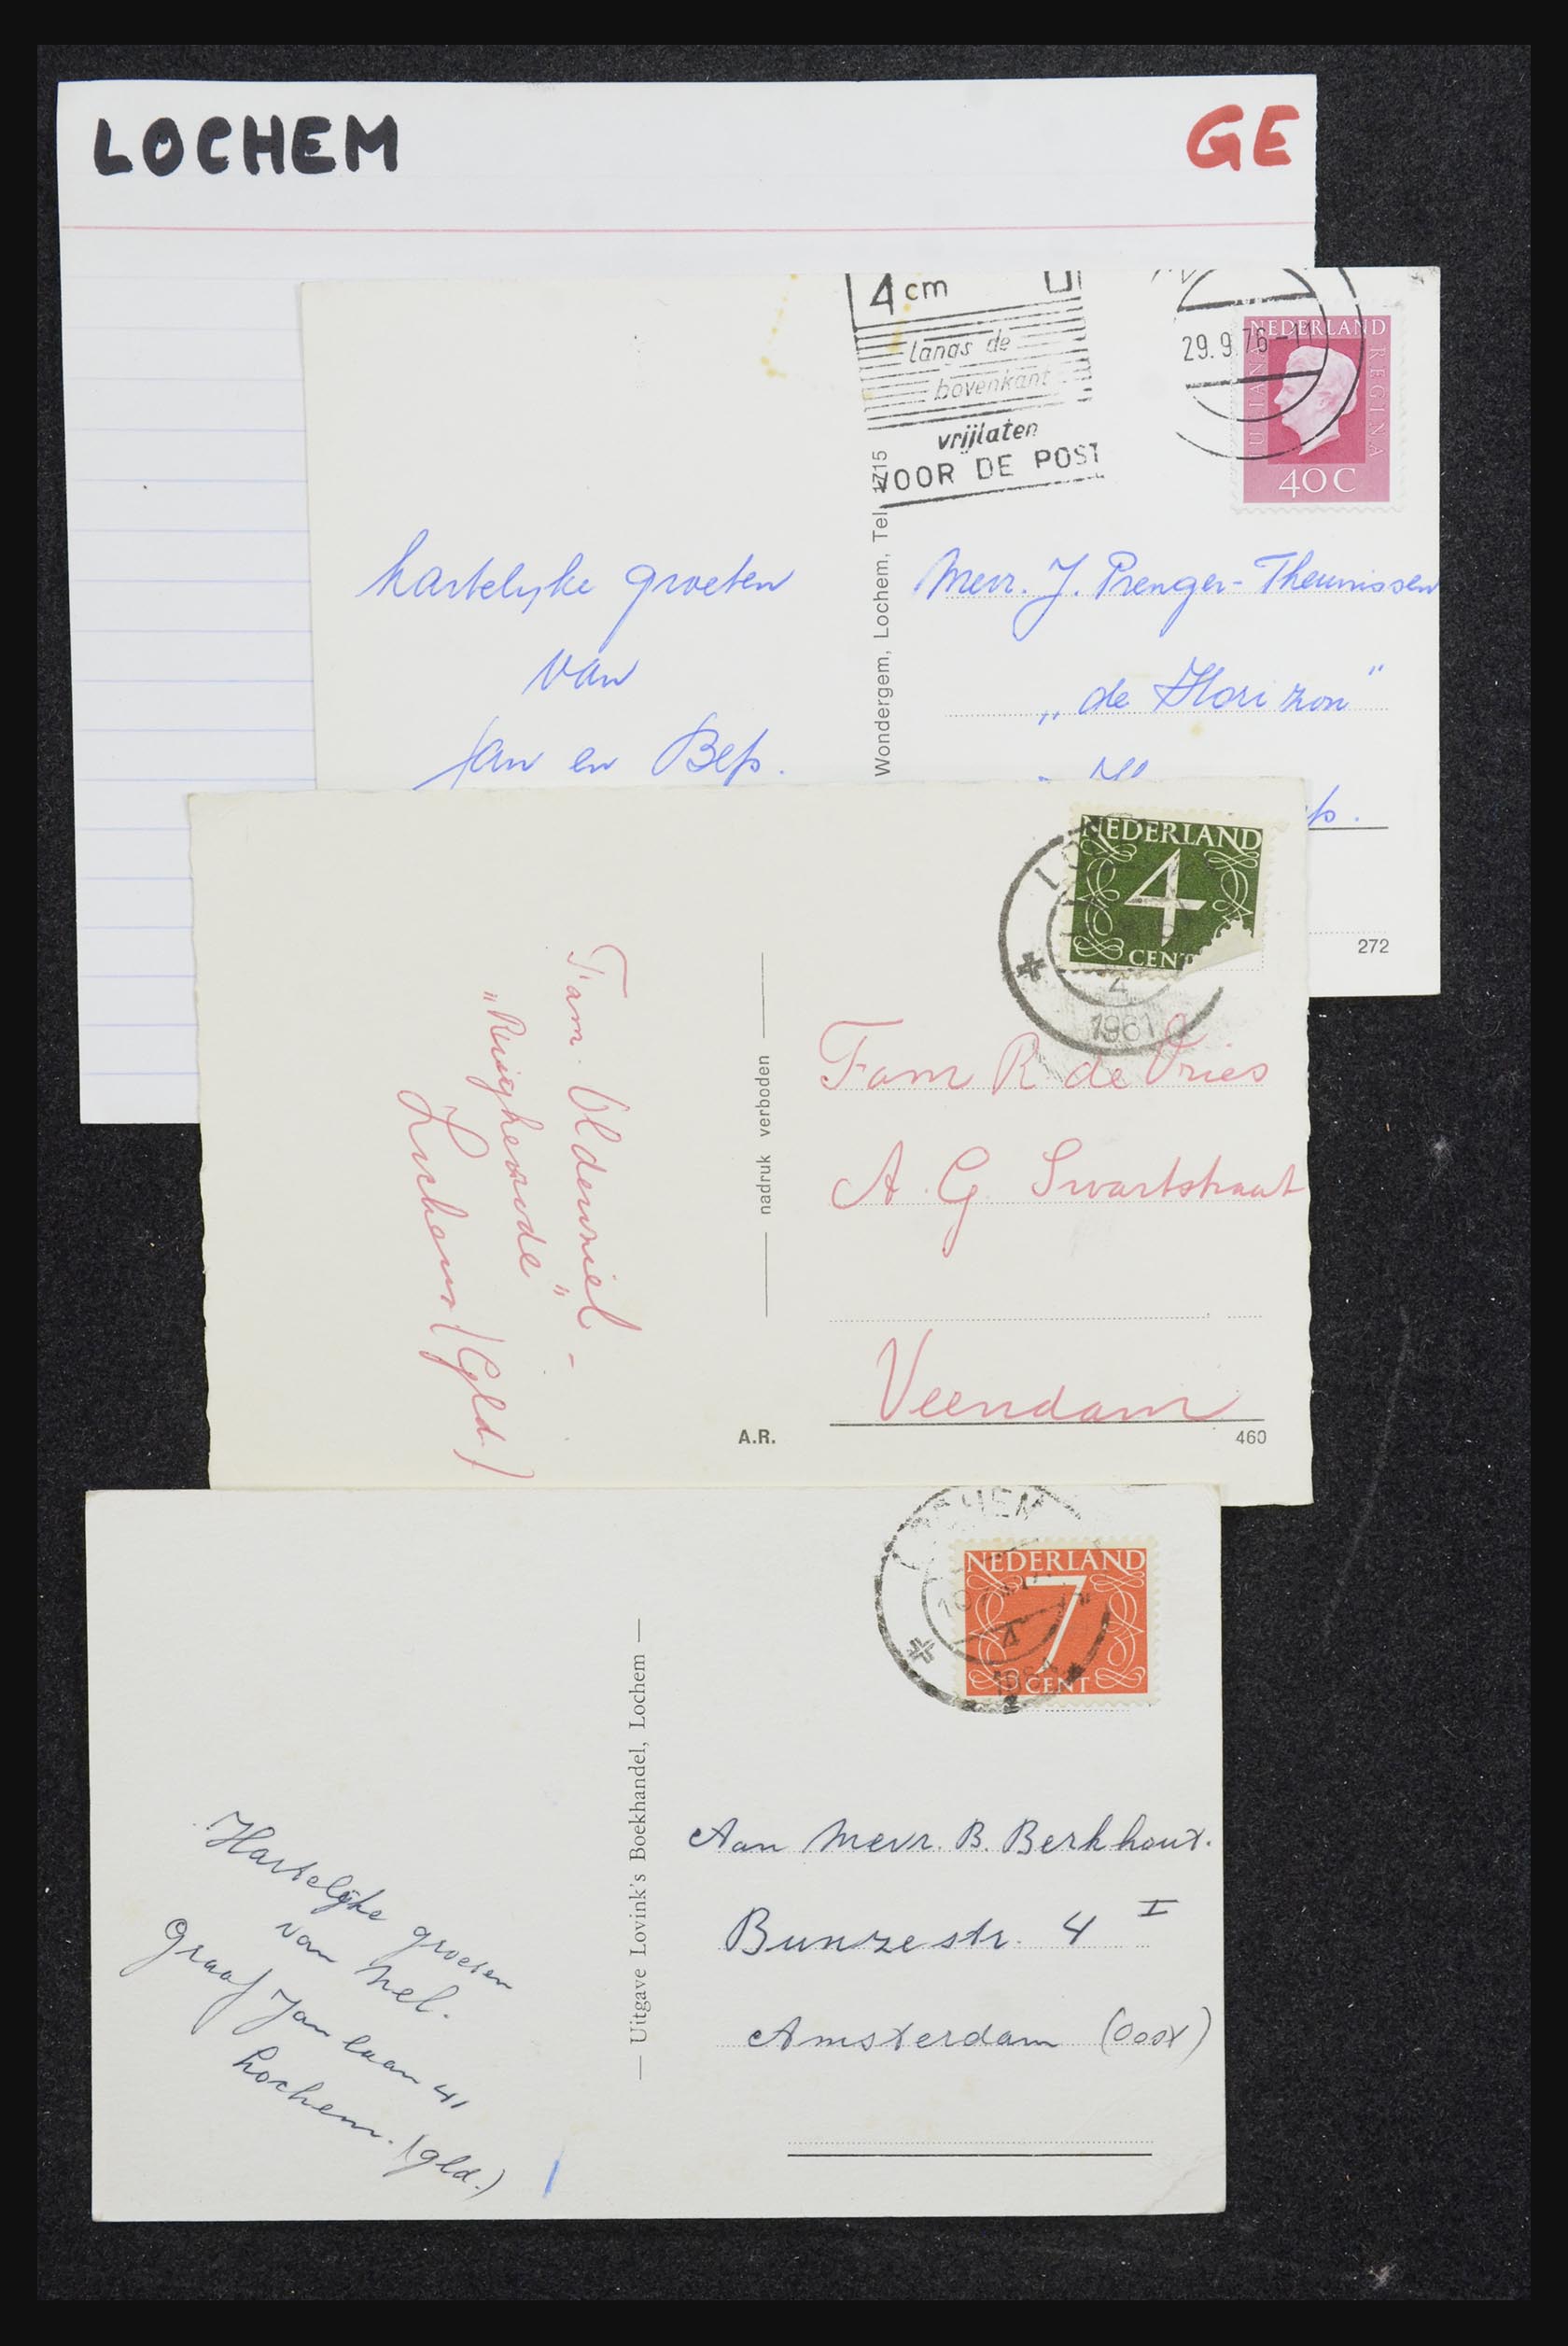 LOCHEM
GE
4 cm
langs de
bovenkant
vrijlaten
VOOR DE POST
29.9.76
NEDERLAND
JULIANA
REGINA
40 C
hartelijke groeten
van
Jan en Bep.
Wondergem, Lochem, Tel. 1715
Mevr. J. Prenger-Theunissen
„de Horizon”
272
NEDERLAND
4
CENT
4
1961
Fam. Oldewiel -
Lochem (Gld.)
nadruk verboden
A.R.
Fam R. de Vries
A. G. Swartstraat
Veendam
460
LOCHEM
4
NEDERLAND
7
CENT
Hartelijke groeten
van Nel.
Graaf Jan laan 41
Lochem. (Gld.)
— Uitgave Lovink's Boekhandel, Lochem —
Aan Mevr. B. Berkhout.
Bunzestr. 4 I
Amsterdam (Oost)